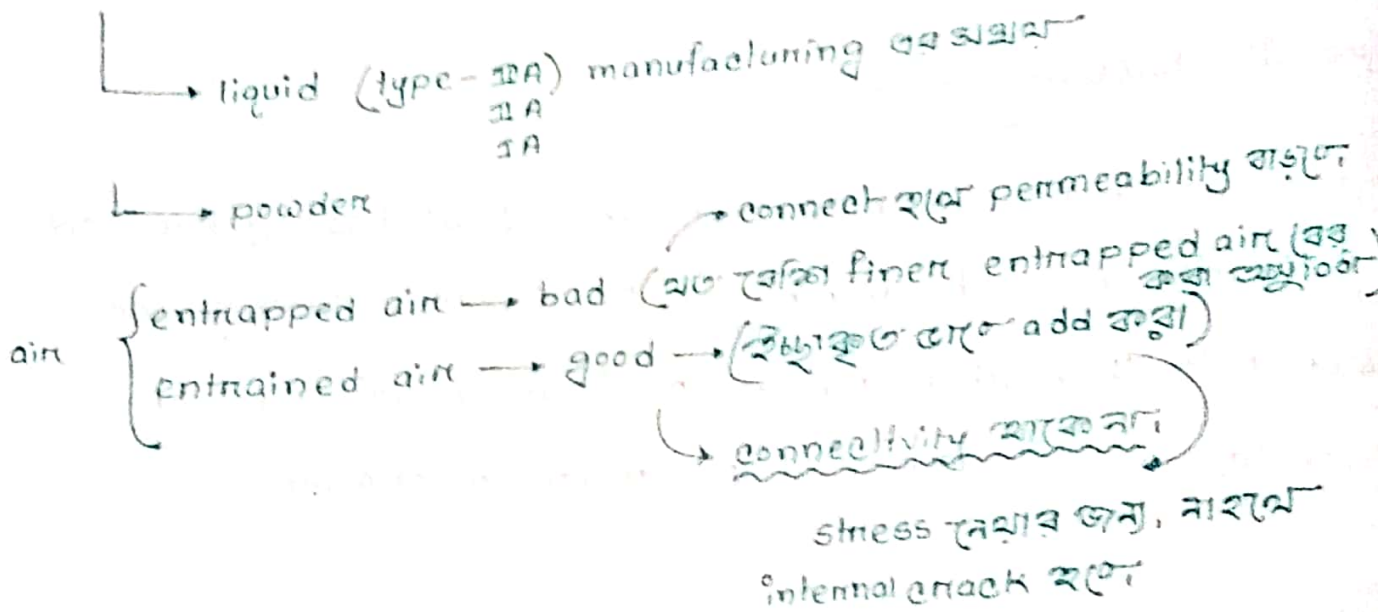 liquid (type-IIIA) manufacturing এর সময়
IIA
IA
powder
connect হলে permeability বাড়বে
entrapped air → bad (যত বেশি finer entrapped air বের
করা
air
entrained air → good → (ইচ্ছাকৃত ভাবে add করা)
connectivity থাকে না।
stress নেয়ার জন্য, নাহলে
internal crack হবে